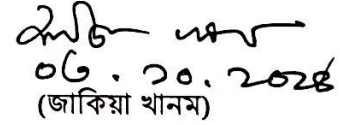 ০৬.১০.২০২৪
(জাকিয়া খানম)